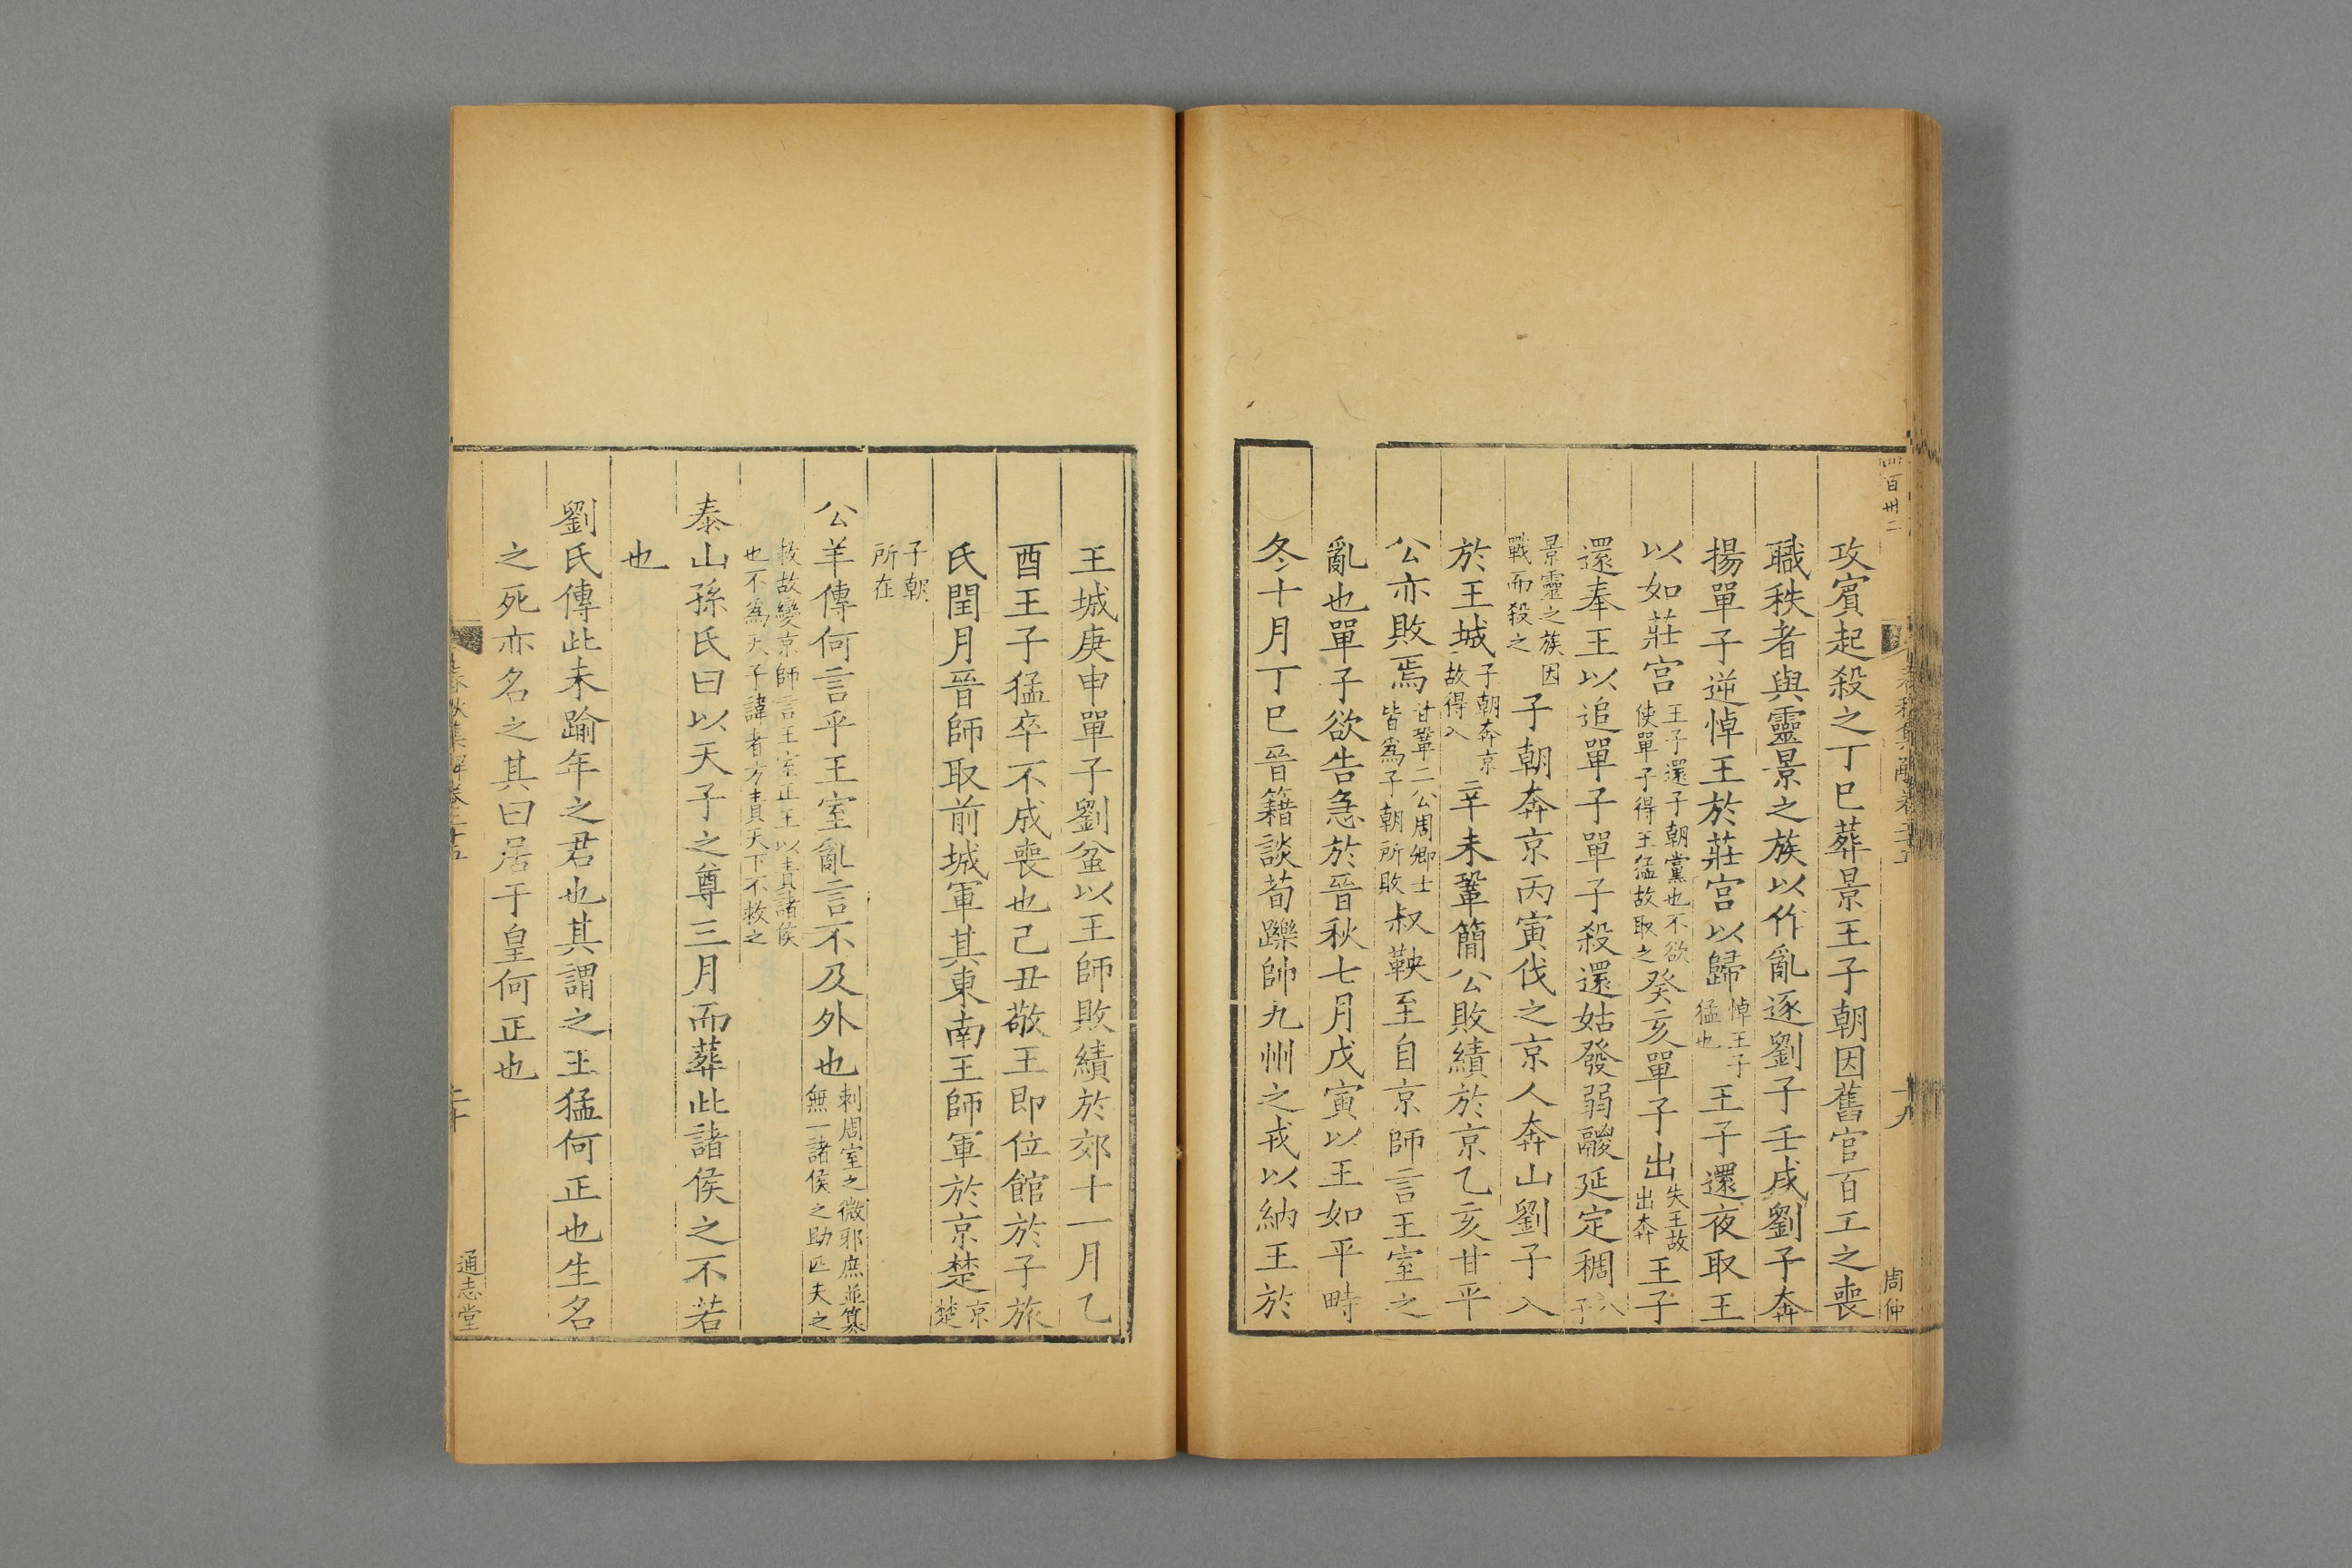 四百卅二
十九
周仲
攻賓起殺之丁巳葬景王子朝因舊官百工之喪
職秩者與靈景之族以作亂逐劉子壬戌劉子奔
揚單子逆悼王於莊宮以歸悼王子猛也王子還夜取王
以如莊宮王子還子朝黨也不欲使單子得王猛故取之癸亥單子出失王故出奔王子
還奉王以追單子單子殺還姑發弱鬷延定稠八子
景靈之族因戰而殺之子朝奔京丙寅伐之京人奔山劉子入
於王城子朝奔京故得入辛未鞏簡公敗績於京乙亥甘平
公亦敗焉甘鞏二公周卿士皆爲子朝所敗叔鞅至自京師言王室之
亂也單子欲告急於晉秋七月戊寅以王如平畤
冬十月丁巳晉籍談荀躒帥九州之戎以納王於
王城庚申單子劉蚠以王師敗績於郊十一月乙
酉王子猛卒不成喪也己丑敬王即位館於子旅
氏閏月晉師取前城軍其東南王師軍於京楚京楚
子朝所在
公羊傳何言乎王室亂言不及外也刺周室之微邪庶並篡無一諸侯之助匹夫之
救故變京師言王室正王以責諸侯也不爲天子諱者方責天下不救之
泰山孫氏曰以天子之尊三月而葬此諸侯之不若
也
劉氏傳此未踰年之君也其謂之王猛何正也生名
之死亦名之其曰居于皇何正也
春秋集解卷二十五
二十
通志堂